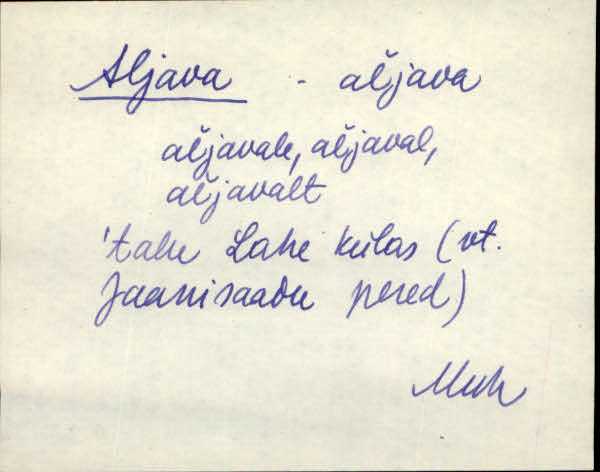 Aljava - al̆java
al̆javale, al̆javal,
al̆javalt
'talu Lahe külas (vt.
Jaanisaadu pered)
Muh